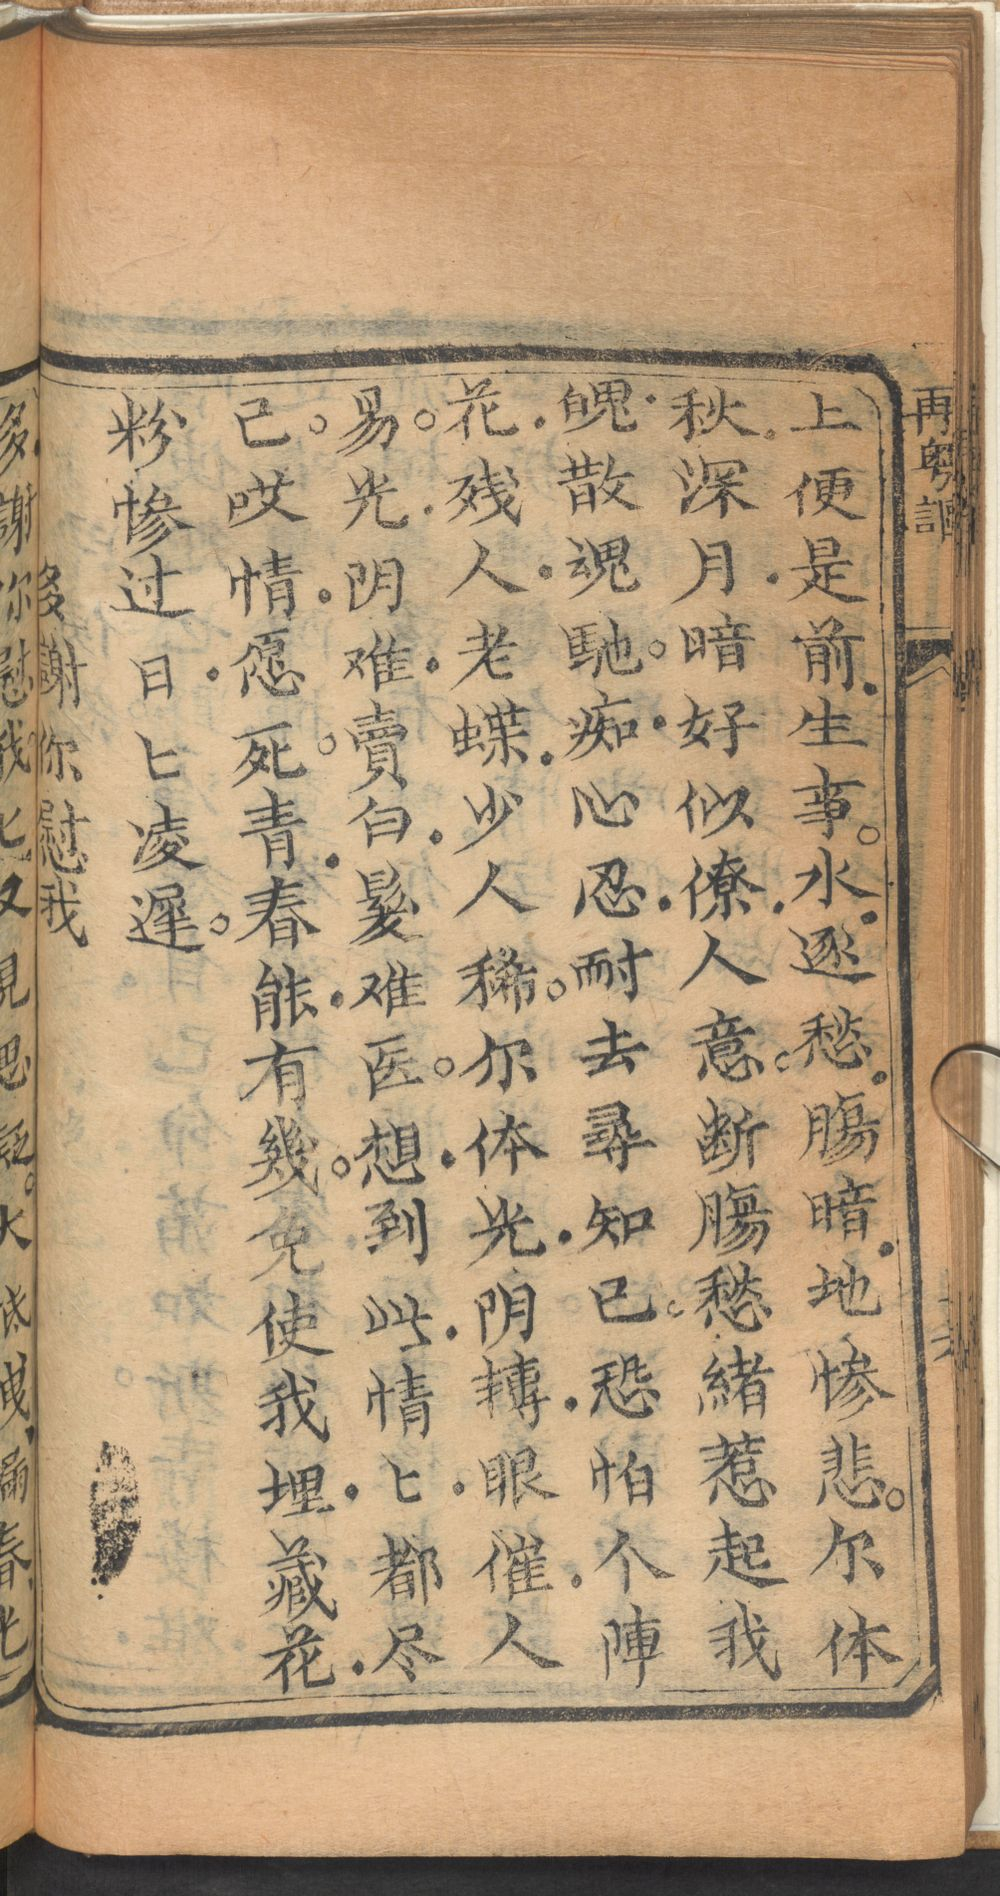 再粵謳
上便是前生事。水逐愁腸暗地惨悲。尔体
秋深月暗好似僚人意。断腸愁緒惹起我
魄散魂馳。痴心忍耐去尋知己。恐怕个陣
花残人老蝶少人稀。尔体光阴轉眼催人
易。光阴难賣白髮难医。想到此情匕都尽
己。哎情愿死。青春能有幾。免使我埋藏花
粉惨过日匕凌遲。
多謝你慰我
多謝你慰我匕又見思疑。大